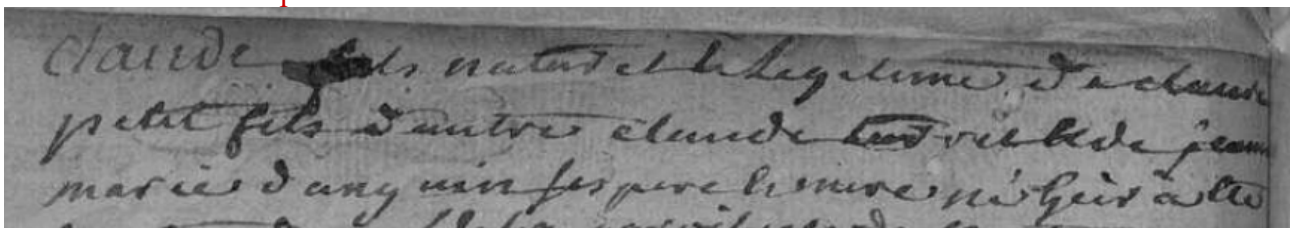 claude fils naturel et legetime de claude
petit fils d'autre claude et de jeanne
marie danguin ses pere et mere né hier a